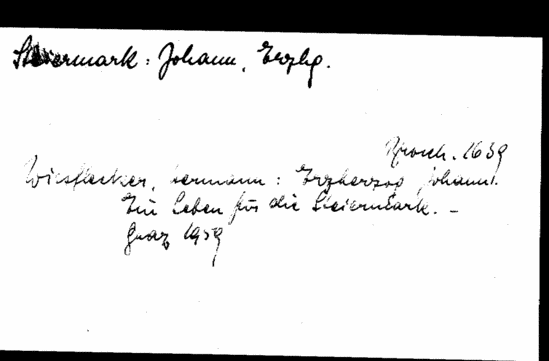 Steiermark: Johann, Erzhg.
Brosch. 1659
Wiesflecker, Hermann: Erzherzog Johann.
Ein Leben für die Steiermark. –
Graz 1959